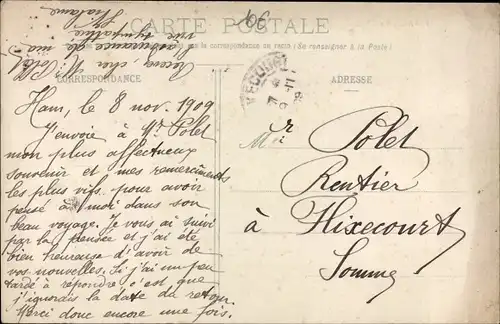 CARTE POSTALE
(Se renseigner à la Poste)
CORRESPONDANCE
ADRESSE
Ham, le 8 nov. 1909
J'envoie à Mr Polet
mon plus affectueux
souvenir et mes remerciments
les plus vifs, pour avoir
pensé à moi dans son
beau voyage. Je vous ai suivi
par la pensée et j'ai été
bien heureuse d'avoir de
vos nouvelles. Si j'ai un peu
tardé à répondre c'est que
j'ignorais la date du retour.
Merci donc encore une fois.
Recevez, cher Mr Polet
assurance de ma
sympathie
Mr Polet
Rentier
à Hixecourt
Somme